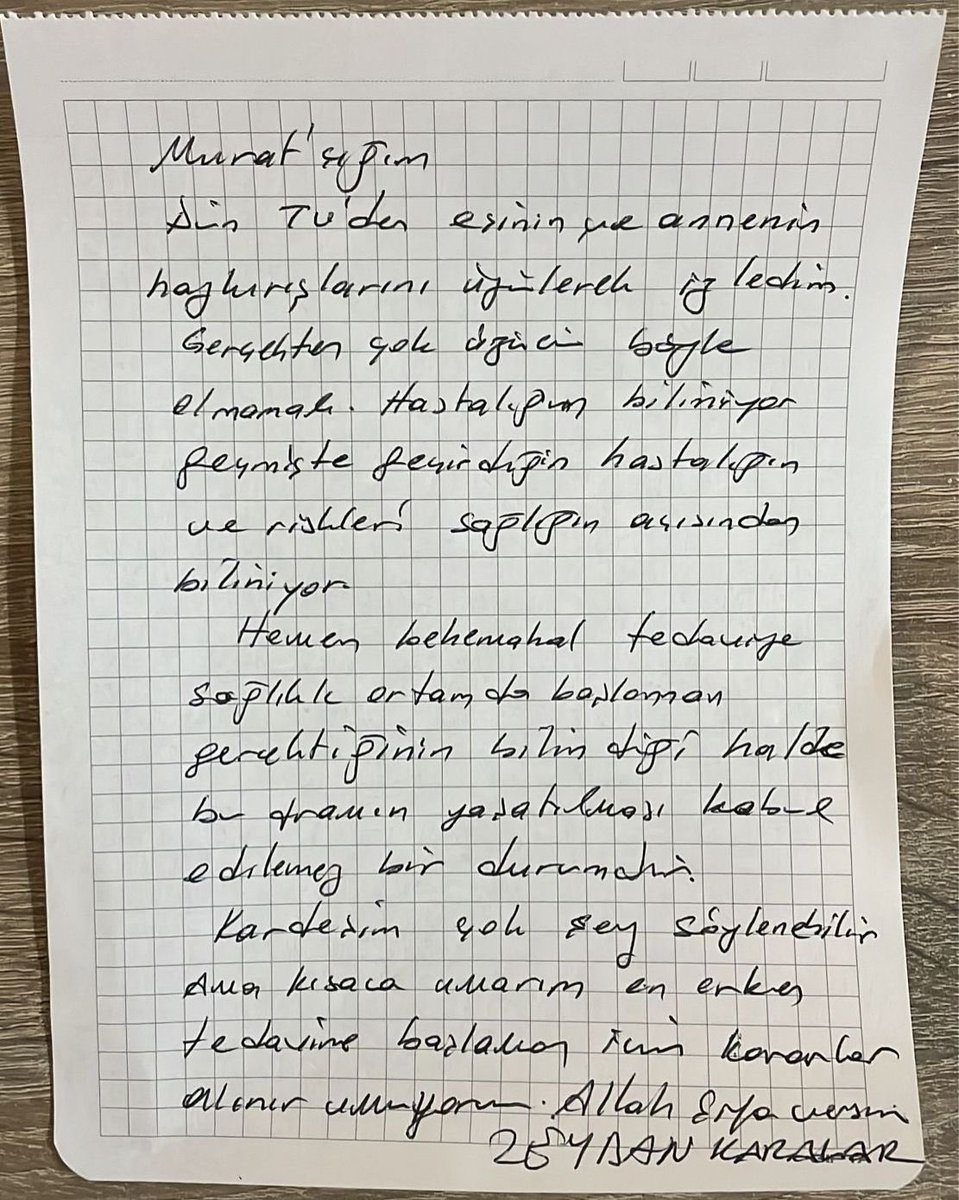 Murat'cığım
Dün TV'den eşinin ve annenin
haykırışlarını üzülerek izledim.
Gerçekten çok üzücü böyle
olmamalı. Hastalığın biliniyor
geçmişte geçirdiğin hastalığın
ve riskleri sağlığın açısından
biliniyor
Hemen behemahal tedaviye
sağlıklı ortamda başlaman
gerektiğinin bilindiği halde
bu dramın yaşatılması kabul
edilemez bir durumdur.
Kardeşim çok şey söylenebilir
Ama kısaca umarım en erken
tedavine başlaman için kararlar
alınır umuyorum. Allah şifa versin
ZEYDAN KARALAR